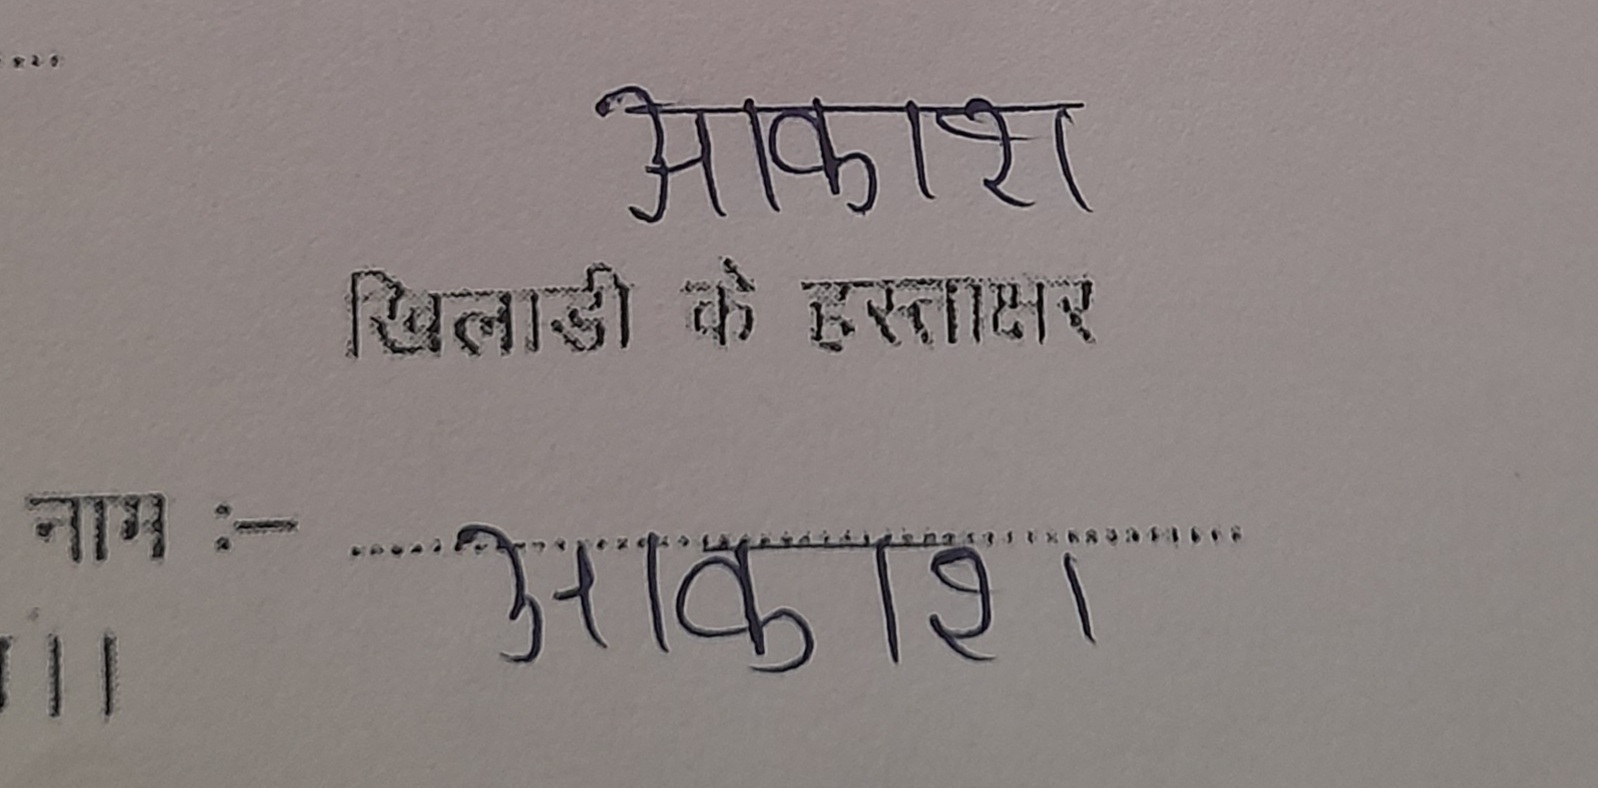 आकाश
खिलाडी के हस्ताक्षर
नाम :- आकाश